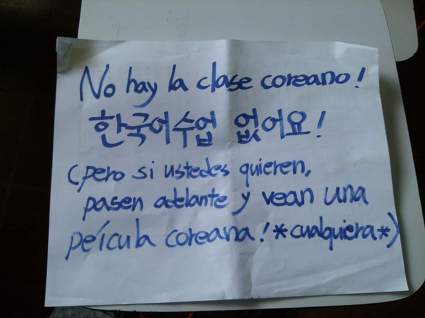 No hay la clase coreano!
한국어수업 없어요!
(pero si ustedes quieren,
pasen adelante y vean una
peícula coreana! *cualquiera*)